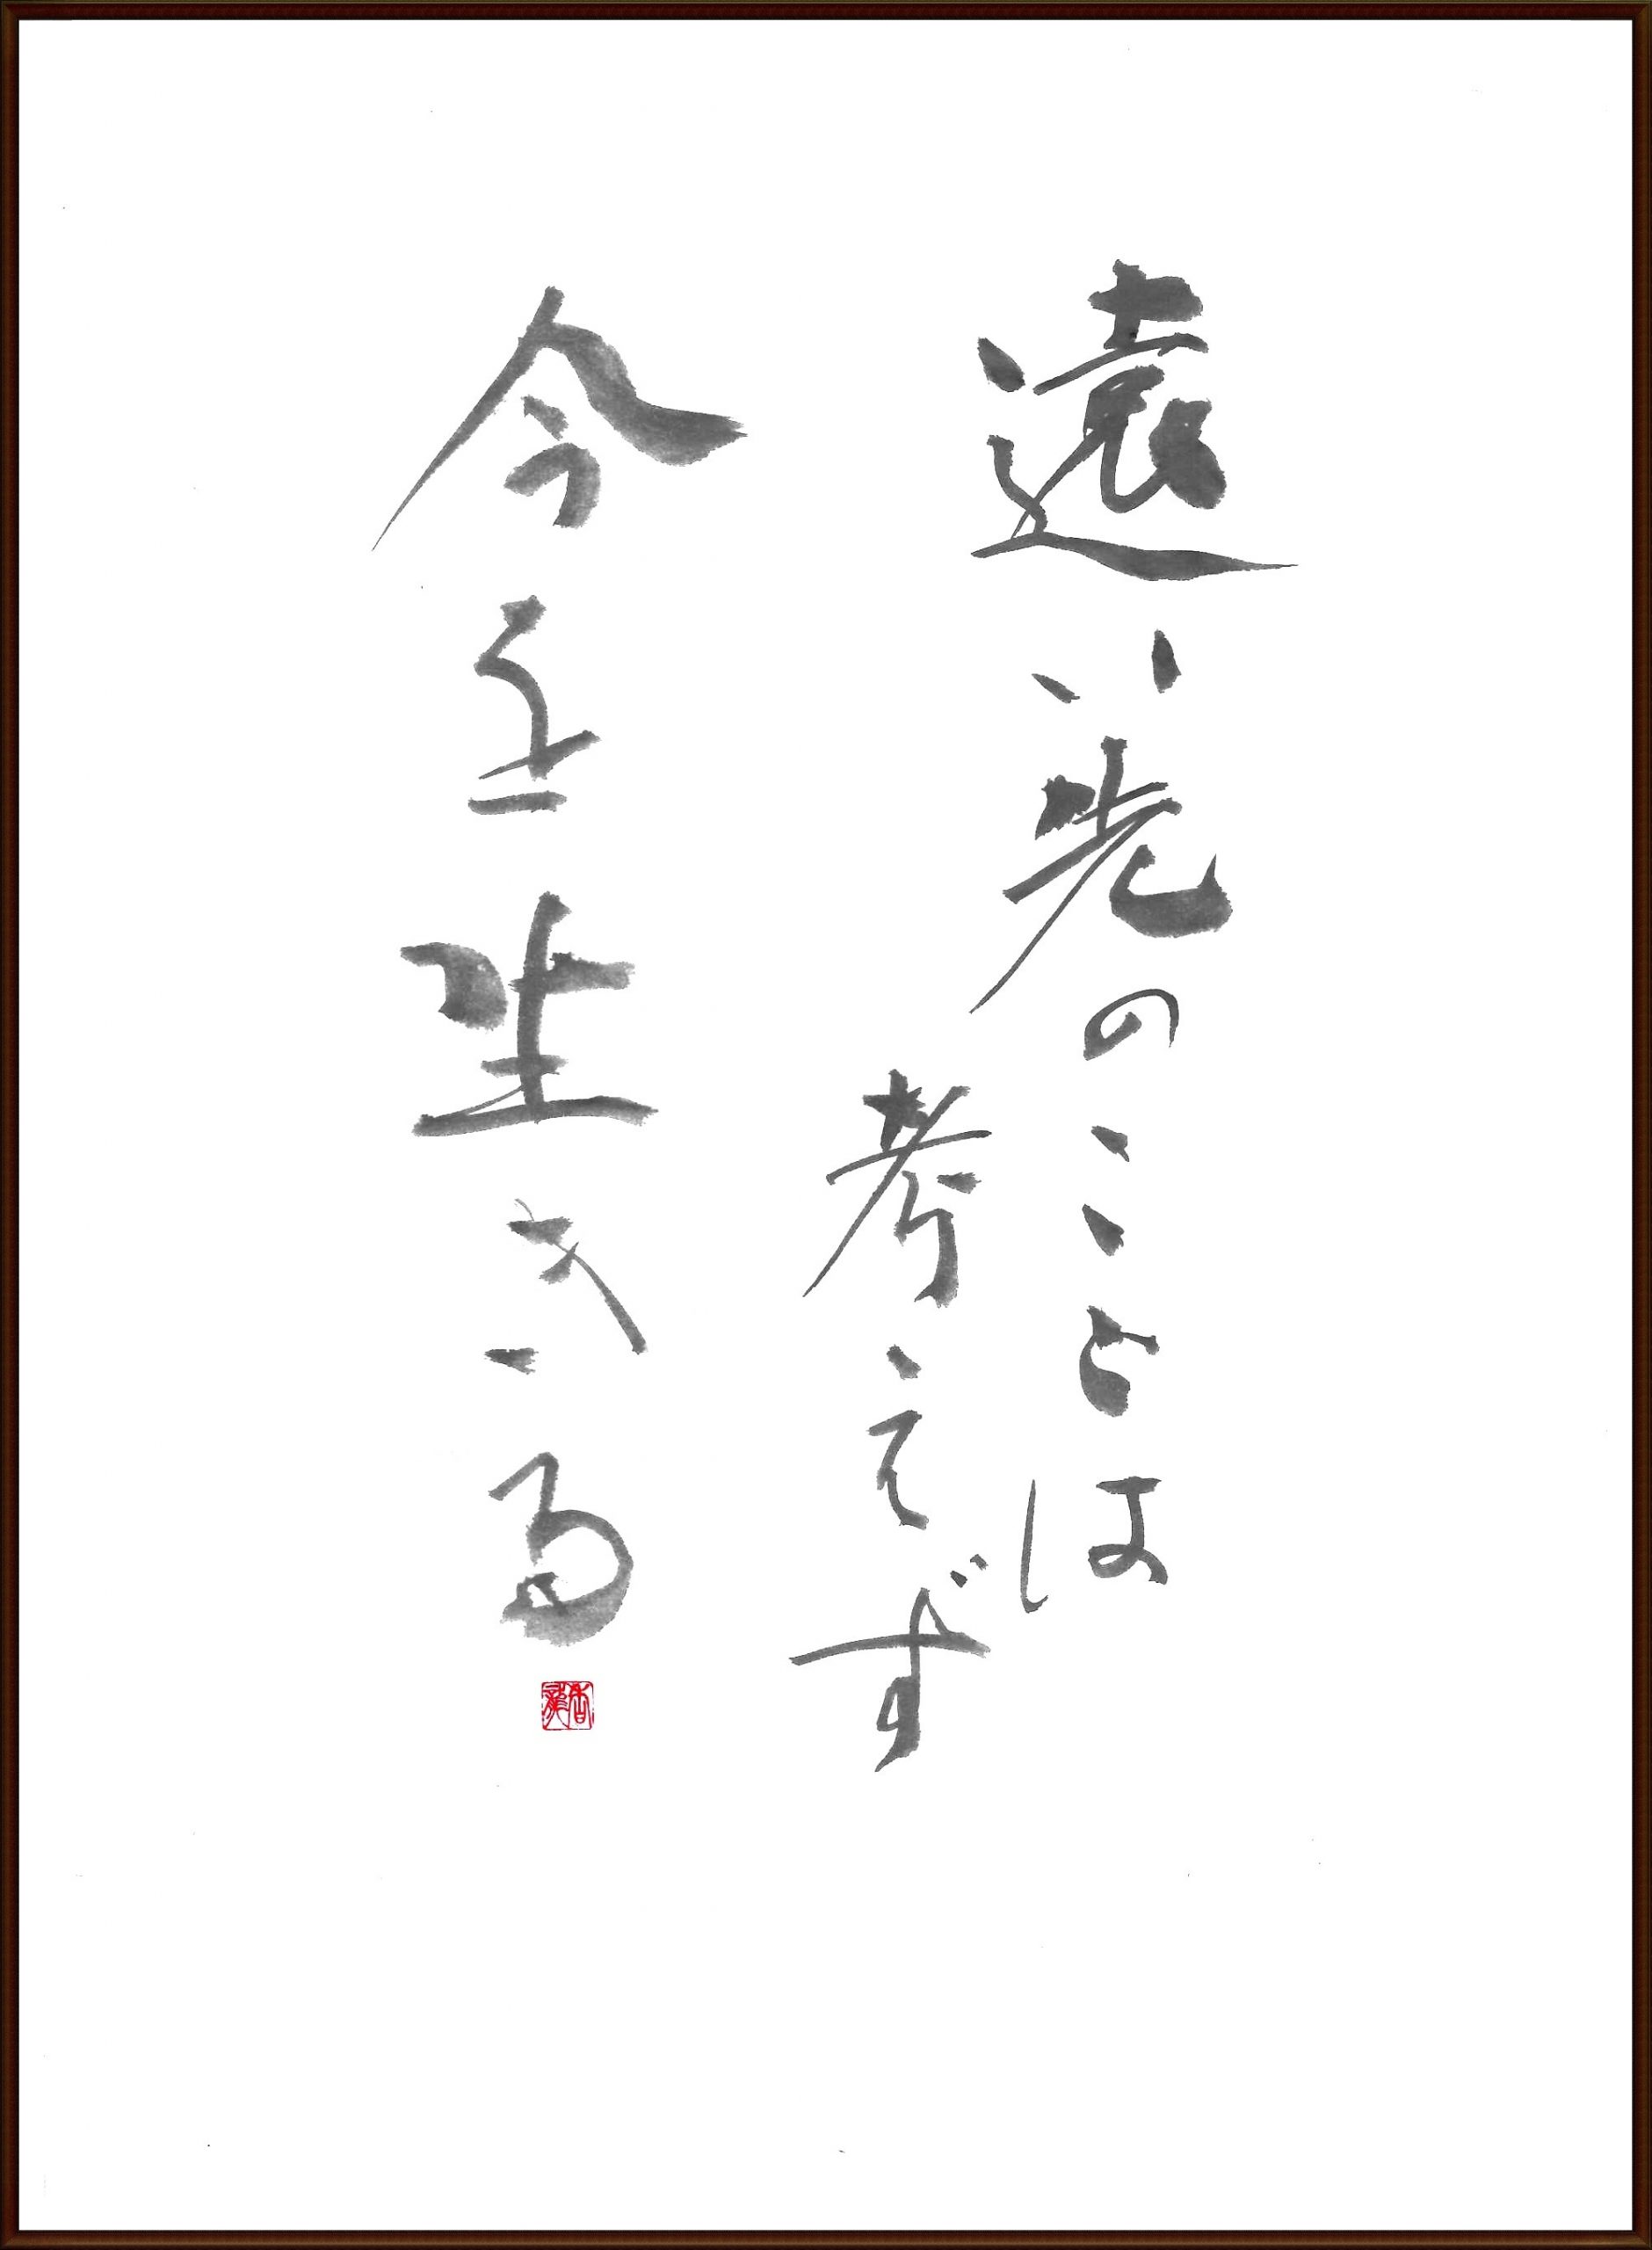 遠い先のことは
考えず
今を生きる
香龍